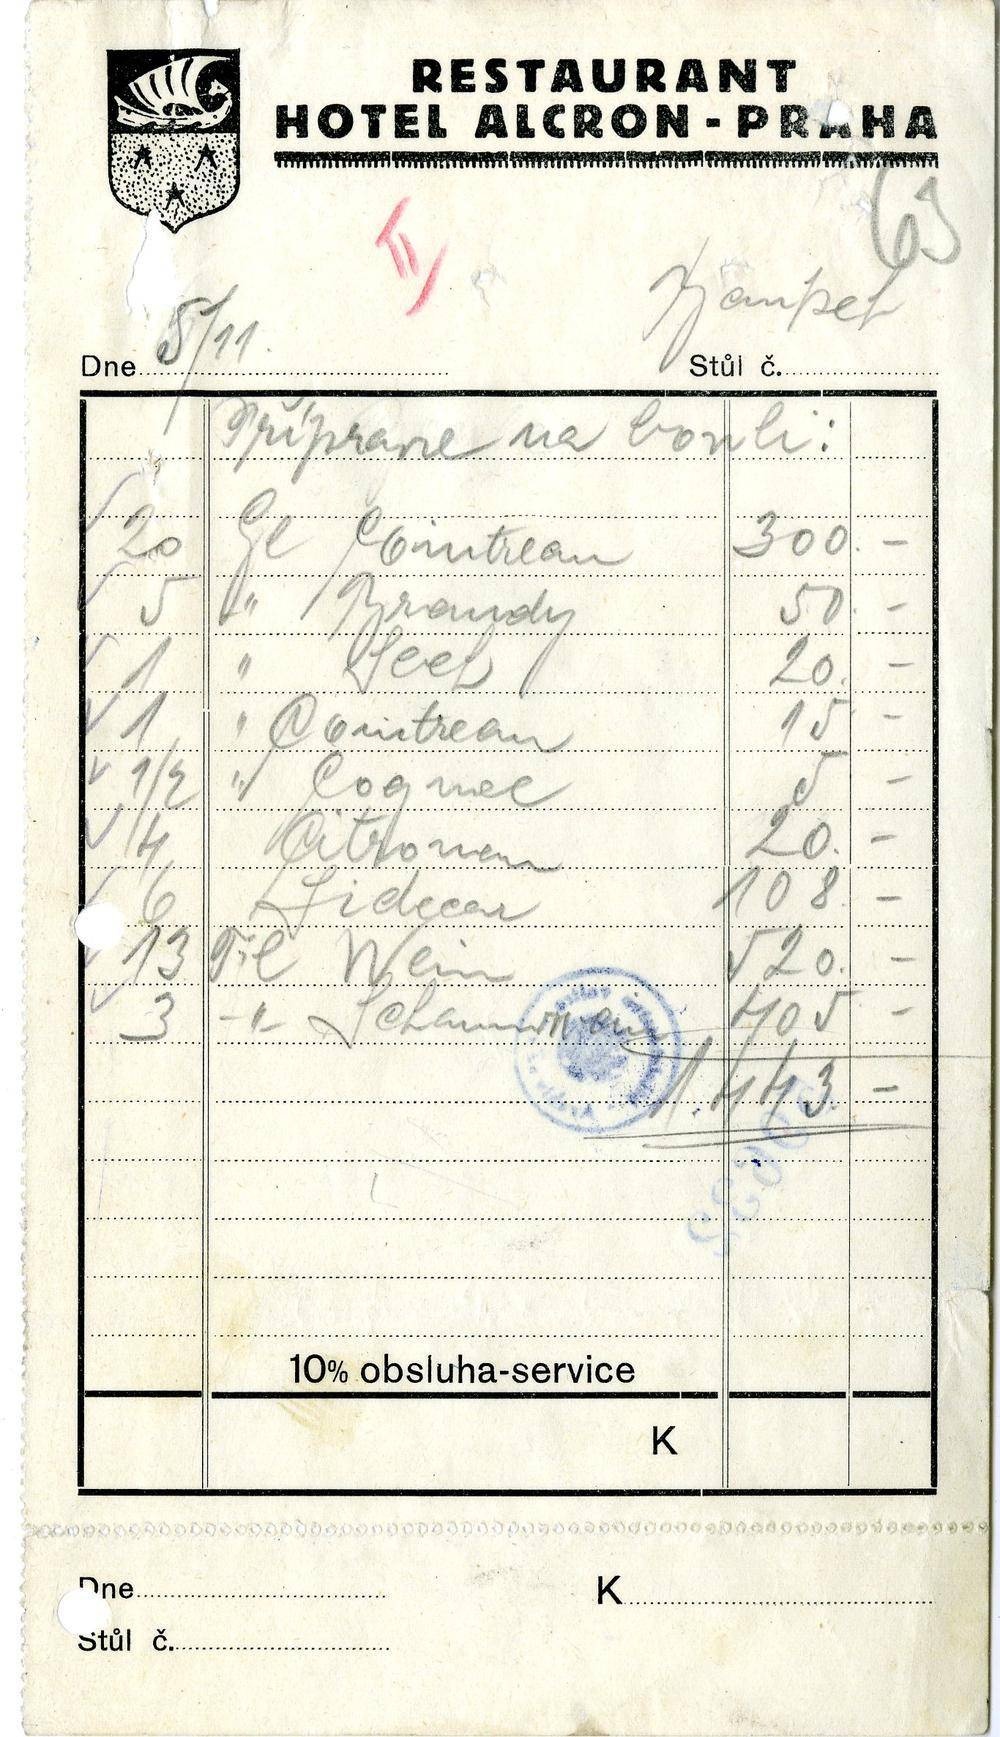 RESTAURANT
HOTEL ALCRON - PRAHA
63
II/
Dne 5/11.
Stůl č.
Přípravne na bovli:
20 Gl Cointreau 300.-
5 " Brandy 50.-
1 " Sect 20.-
1 " Cointreau 15.-
1/2 " Cognac 5 -
4 Citronen 20.-
6 Sidecar 108.-
13 Fl Wein 520.-
3 -"- Schaumwein 405 -
1443 -
10% obsluha-service
K
Dne
K
Stůl č.